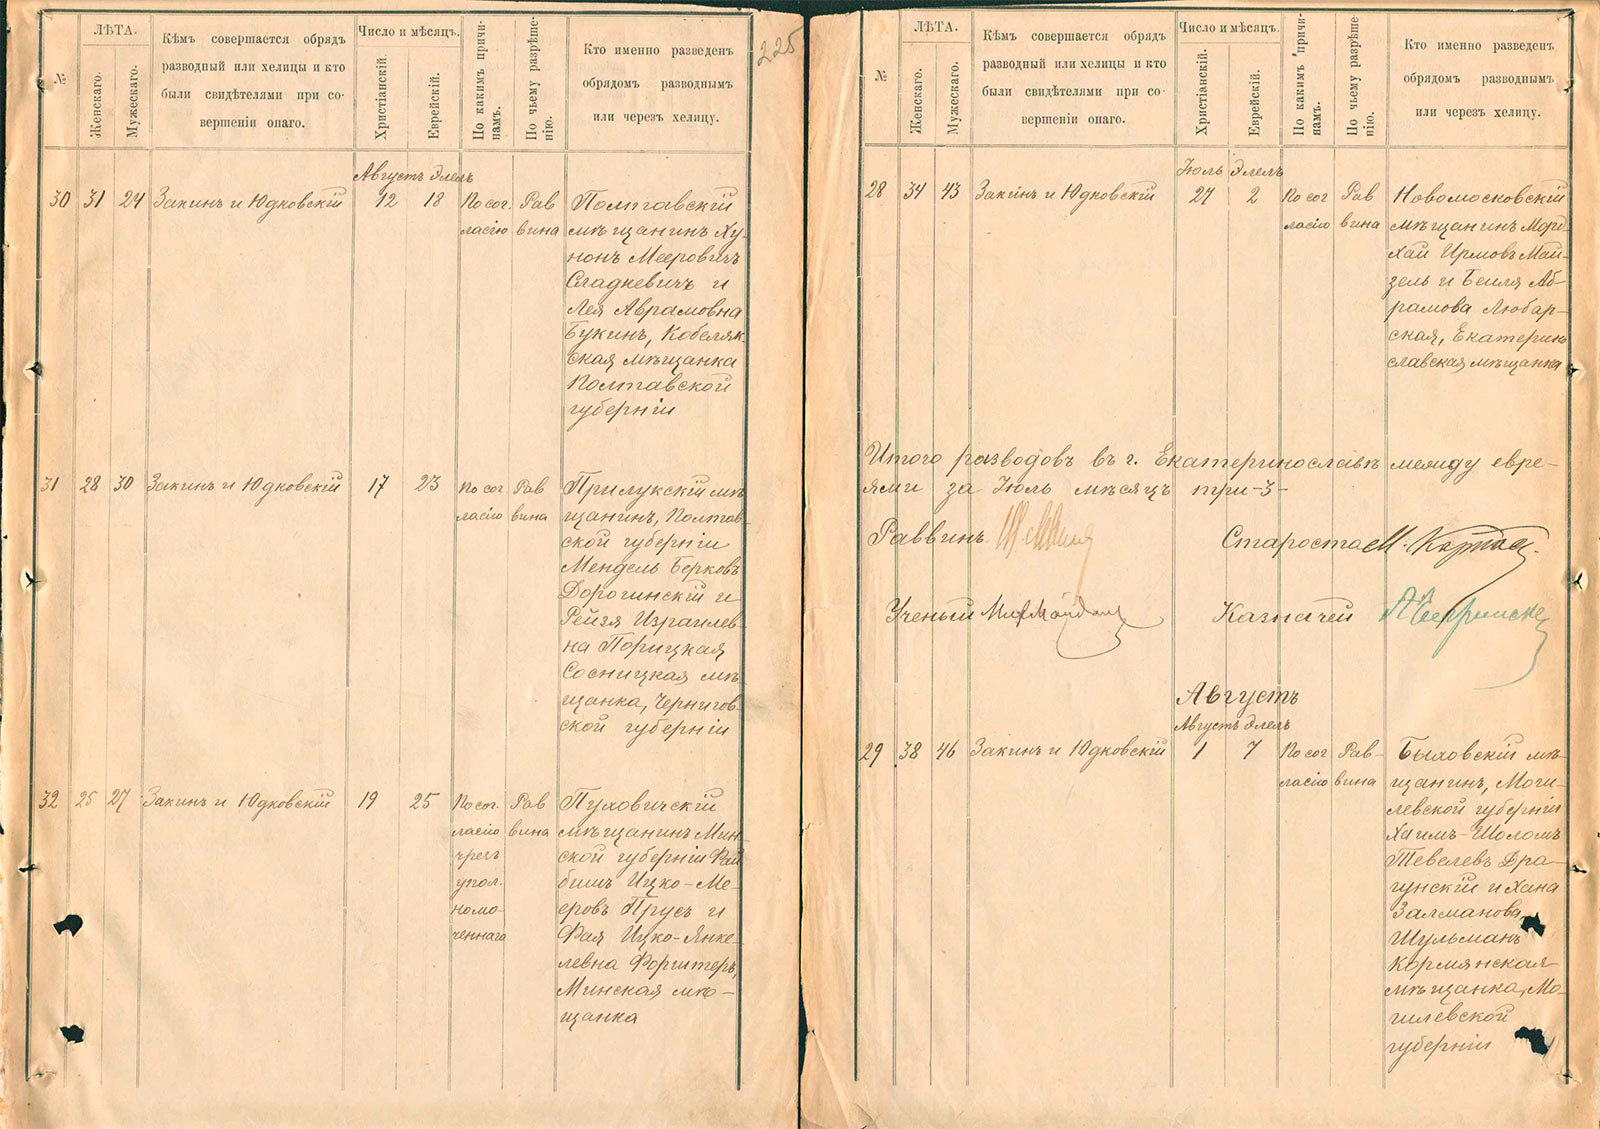 225
№
ЛѢТА.
Женскаго.
Мужескаго.
Кѣмъ совершается обрядъ
разводный или хелицы и кто
были свидѣтелями при со-
вершеніи онаго.
Число и мѣсяцъ.
Христіанскій.
Еврейскій.
По какимъ причи-
намъ.
По чьему разрѣше-
нію.
Кто именно разведенъ
обрядомъ разводнымъ
или черезъ хелицу.
Августъ Элелъ
30 31 24 Закинъ и Юдковскій 12 18 По сог. Рав Полтавскій
ласію вина мѣщанинъ Ху-
нонъ Мееровичъ
Сладкевичъ и
Лея Аврамовна
Букинъ, Кобеляк-
ская мѣщанка
Полтавской
губерніи
31 28 30 Закинъ и Юдковскій 17 23 По сог Рав Прилукскій мѣ
ласію вина щанинъ, Полтав-
ской губерніи
Мендель Берковъ
Дорогинскій и
Рейзя Израилев-
на Порицкая
Сосницкая мѣ
щанка, Чернигов
ской губерніи
32 25 27 Закинъ и Юдковскій 19 25 По сог. Рав Пуховичскій
ласію вина мѣщанинъ Мин-
чрезъ ской губерніи Фай
упол. бишъ Ицко-Ме-
номо- еровъ Прусъ и
ченнаго Фая Ицко-Янке-
левна Форштеръ,
Минская мѣ-
щанка
№
ЛѢТА.
Женскаго.
Мужескаго.
Кѣмъ совершается обрядъ
разводный или хелицы и кто
были свидѣтелями при со-
вершеніи онаго.
Число и мѣсяцъ.
Христіанскій.
Еврейскій.
По какимъ причи-
намъ.
По чьему разрѣше
нію.
Кто именно разведенъ
обрядомъ разводнымъ
или черезъ хелицу.
Іюль Элелъ
28 34 43 Закинъ и Юдковскій 27 2 По сог Рав Новомосковскій
ласію вина мѣщанинъ Морд-
хай Ирмовъ Май-
зель и Бейля Аб-
рамова Любар-
ская, Екатерино
славская мѣщанка
Итого разводовъ въ г. Екатеринославѣ между евре-
ями за Іюль мѣсяцъ три-3-
Раввинъ Староста М.
Ученый Казначей
Августъ
Августъ Элелъ
29 38 46 Закинъ и Юдковскій 1 7 По сог Рав- Быховскій мѣ-
ласію вина щанинъ, Моги-
левской губерніи
Хаимъ-Шоломъ
Тевелевъ Дра-
гунскій и Хана
Залманова
Шульманъ
Кормянская
мѣщанка, Мо-
гилевской
губерніи